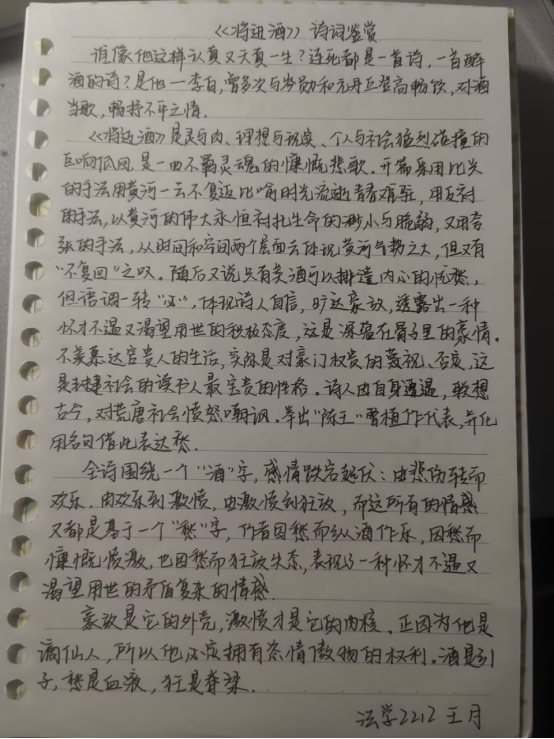 《将进酒》诗词鉴赏
谁像他这样认真又天真一生？连死都是一首诗，一首醉
酒的诗？是他一李白，曾多次与岑勋和元丹丘登高畅饮，对酒
当歌，畅抒不平之情．
《将进酒》是灵与肉、理想与现实、个人与社会猛烈碰撞的
巨响低回，是一曲不羁灵魂的慷慨悲歌．开篇采用比兴
的手法用黄河一去不复返比喻时光流逝青春难驻，用反衬
的手法，以黄河的伟大永恒衬托生命的渺小与脆弱，又用夸
张的手法，从时间和空间两个层面去体现黄河气势之大，但又有
“不复回”之叹．随后又说只有美酒可以排遣内心的忧愁，
但语调一转“必”，体现诗人自信，旷达豪放，透露出一种
怀才不遇又渴望用世的积极态度，这是深蕴在骨子里的豪情．
不羡慕达官贵人的生活，实际是对豪门权贵的蔑视、否定，这
是封建社会的读书人最宝贵的性格．诗人由自身遭遇，联想
古今，对荒唐社会愤怒嘲讽．举出“陈王”曹植作代表，并化
用名句借此表达愁．
全诗围绕一个“酒”字，感情跌宕起伏：由悲伤转而
欢乐，由欢乐到激愤，由激愤到狂放，而这所有的情感
又都是基于一个“愁”字，作者因愁而纵酒作乐，因愁而
慷慨愤激，也因愁而狂放失态，表现了一种怀才不遇又
渴望用世的矛盾复杂的情感．
豪放是它的外壳，激愤才是它的内核．正因为他是
谪仙人，所以他应该拥有恣情傲物的权利．酒是引
子，愁是血液，狂是脊梁．
法学2212 王月